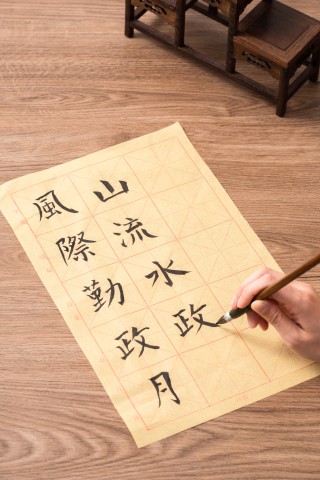 風際勤政月
山流水政